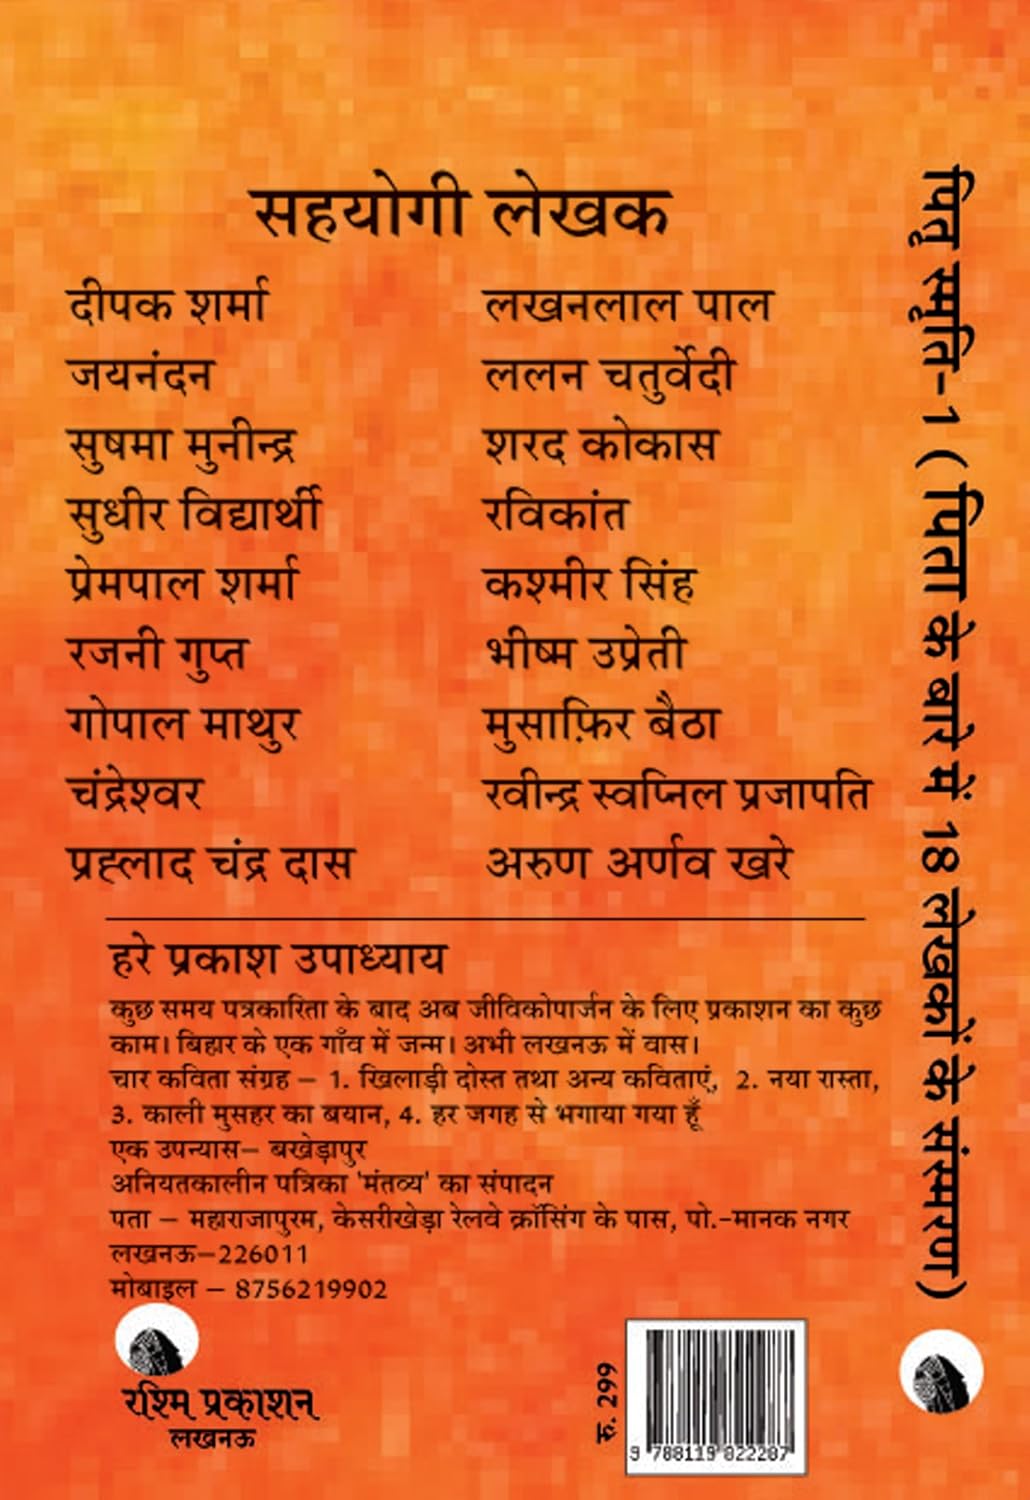 सहयोगी लेखक
दीपक शर्मा
जयनंदन
सुषमा मुनीन्द्र
सुधीर विद्यार्थी
प्रेमपाल शर्मा
रजनी गुप्त
गोपाल माथुर
चंद्रेश्वर
प्रह्लाद चंद्र दास
लखनलाल पाल
ललन चतुर्वेदी
शरद कोकास
रविकांत
कश्मीर सिंह
भीष्म उप्रेती
मुसाफ़िर बैठा
रवीन्द्र स्वप्निल प्रजापति
अरुण अर्णव खरे
हरे प्रकाश उपाध्याय
कुछ समय पत्रकारिता के बाद अब जीविकोपार्जन के लिए प्रकाशन का कुछ
काम। बिहार के एक गाँव में जन्म। अभी लखनऊ में वास।
चार कविता संग्रह – 1. खिलाड़ी दोस्त तथा अन्य कविताएं, 2. नया रास्ता,
3. काली मुसहर का बयान, 4. हर जगह से भगाया गया हूँ
एक उपन्यास– बखेड़ापुर
अनियतकालीन पत्रिका 'मंतव्य' का संपादन
पता – महाराजापुरम, केसरीखेड़ा रेलवे क्रॉसिंग के पास, पो.-मानक नगर
लखनऊ–226011
मोबाइल – 8756219902
रश्मि प्रकाशन
लखनऊ
रु. 299
9 788119 822287
पितृ स्मृति-1 (पिता के बारे में 18 लेखकों के संस्मरण)